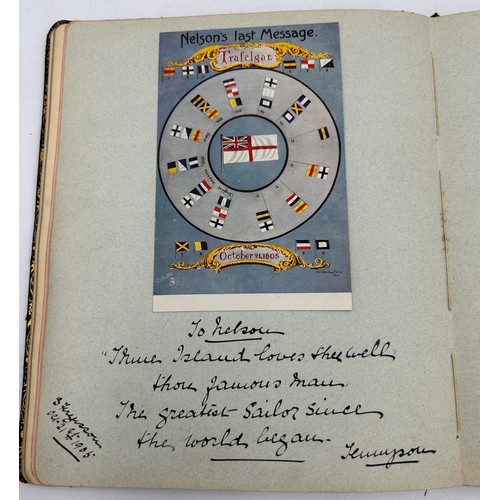 Nelson's last Message.
Trafalgar.
October 21, 1805
To Nelson
"Thine Island loves thee well
thou famous man
The greatest Sailor since
the world began.
Tennyson
Oct 21st/1905